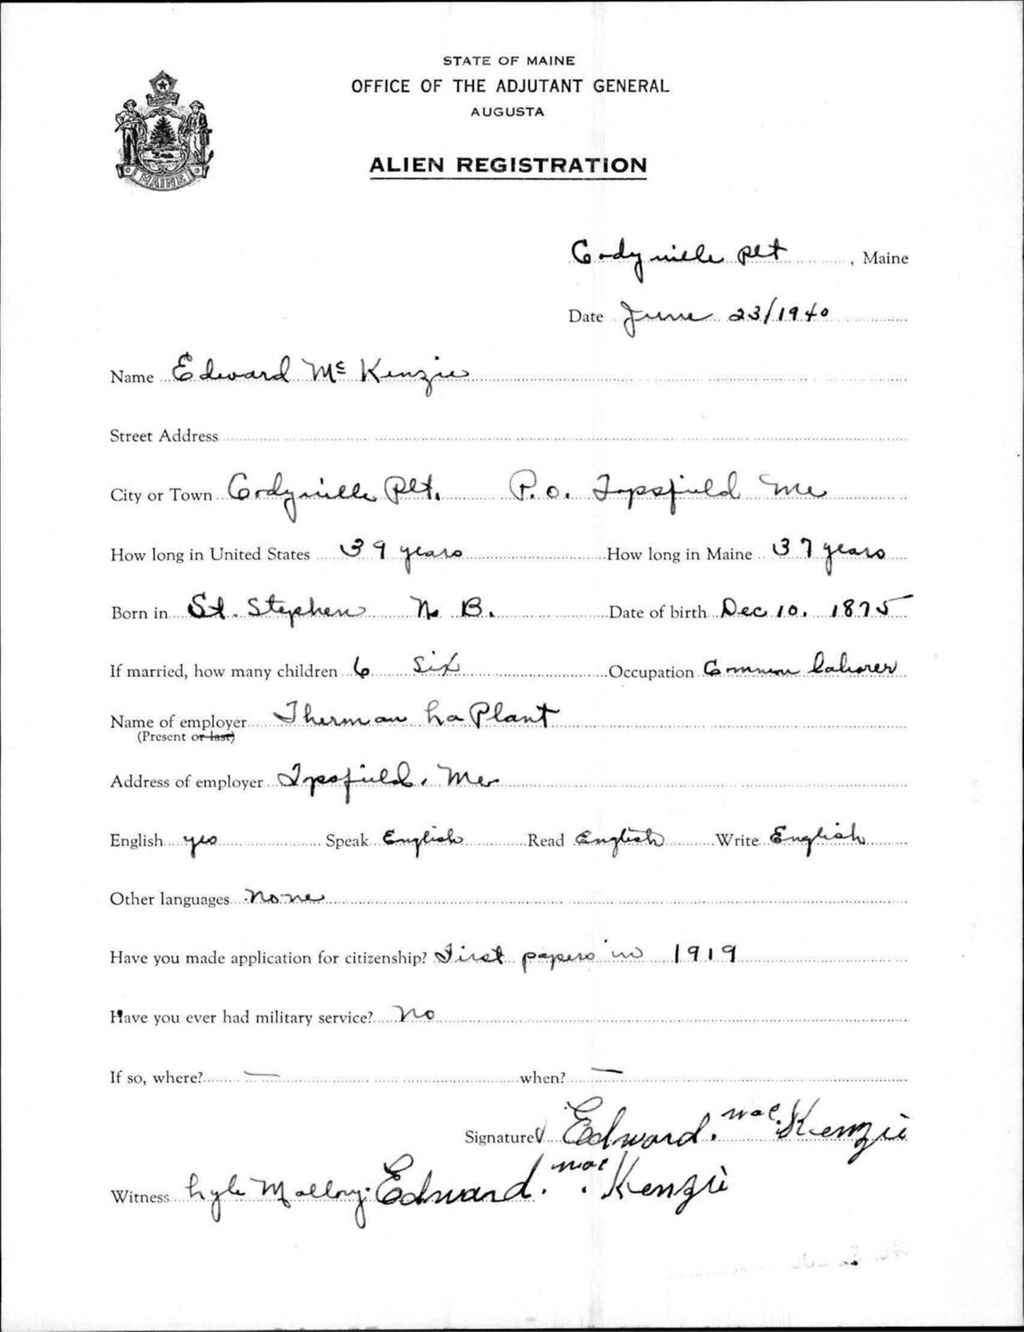 STATE OF MAINE
OFFICE OF THE ADJUTANT GENERAL
AUGUSTA
ALIEN REGISTRATION
MAINE
Codyville Plt, Maine
Date June 23/1940
Name Edward Mc Kenzie
Street Address
City or Town Codyville Plt. P.O. Topsfield Me
How long in United States 39 years How long in Maine 37 years
Born in St. Stephen N. B. Date of birth Dec 10. 1875
If married, how many children 6 Six Occupation Common laborer
Name of employer Therman La Plant
(Present or last)
Address of employer Topsfield. Me
English yes Speak English Read English Write English
Other languages none
Have you made application for citizenship? First papers in 1919
Have you ever had military service? No
If so, where? — when? —
Signature Edward. Mac. Kenzie
Witness Lyle Mallory. Edward. Mac. Kenzie